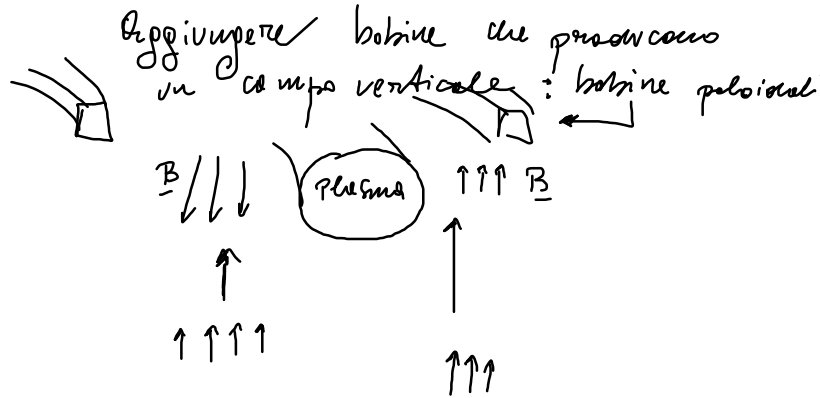 Aggiungere bobine che producono
un campo verticale : bobine poloidali
B plasma B